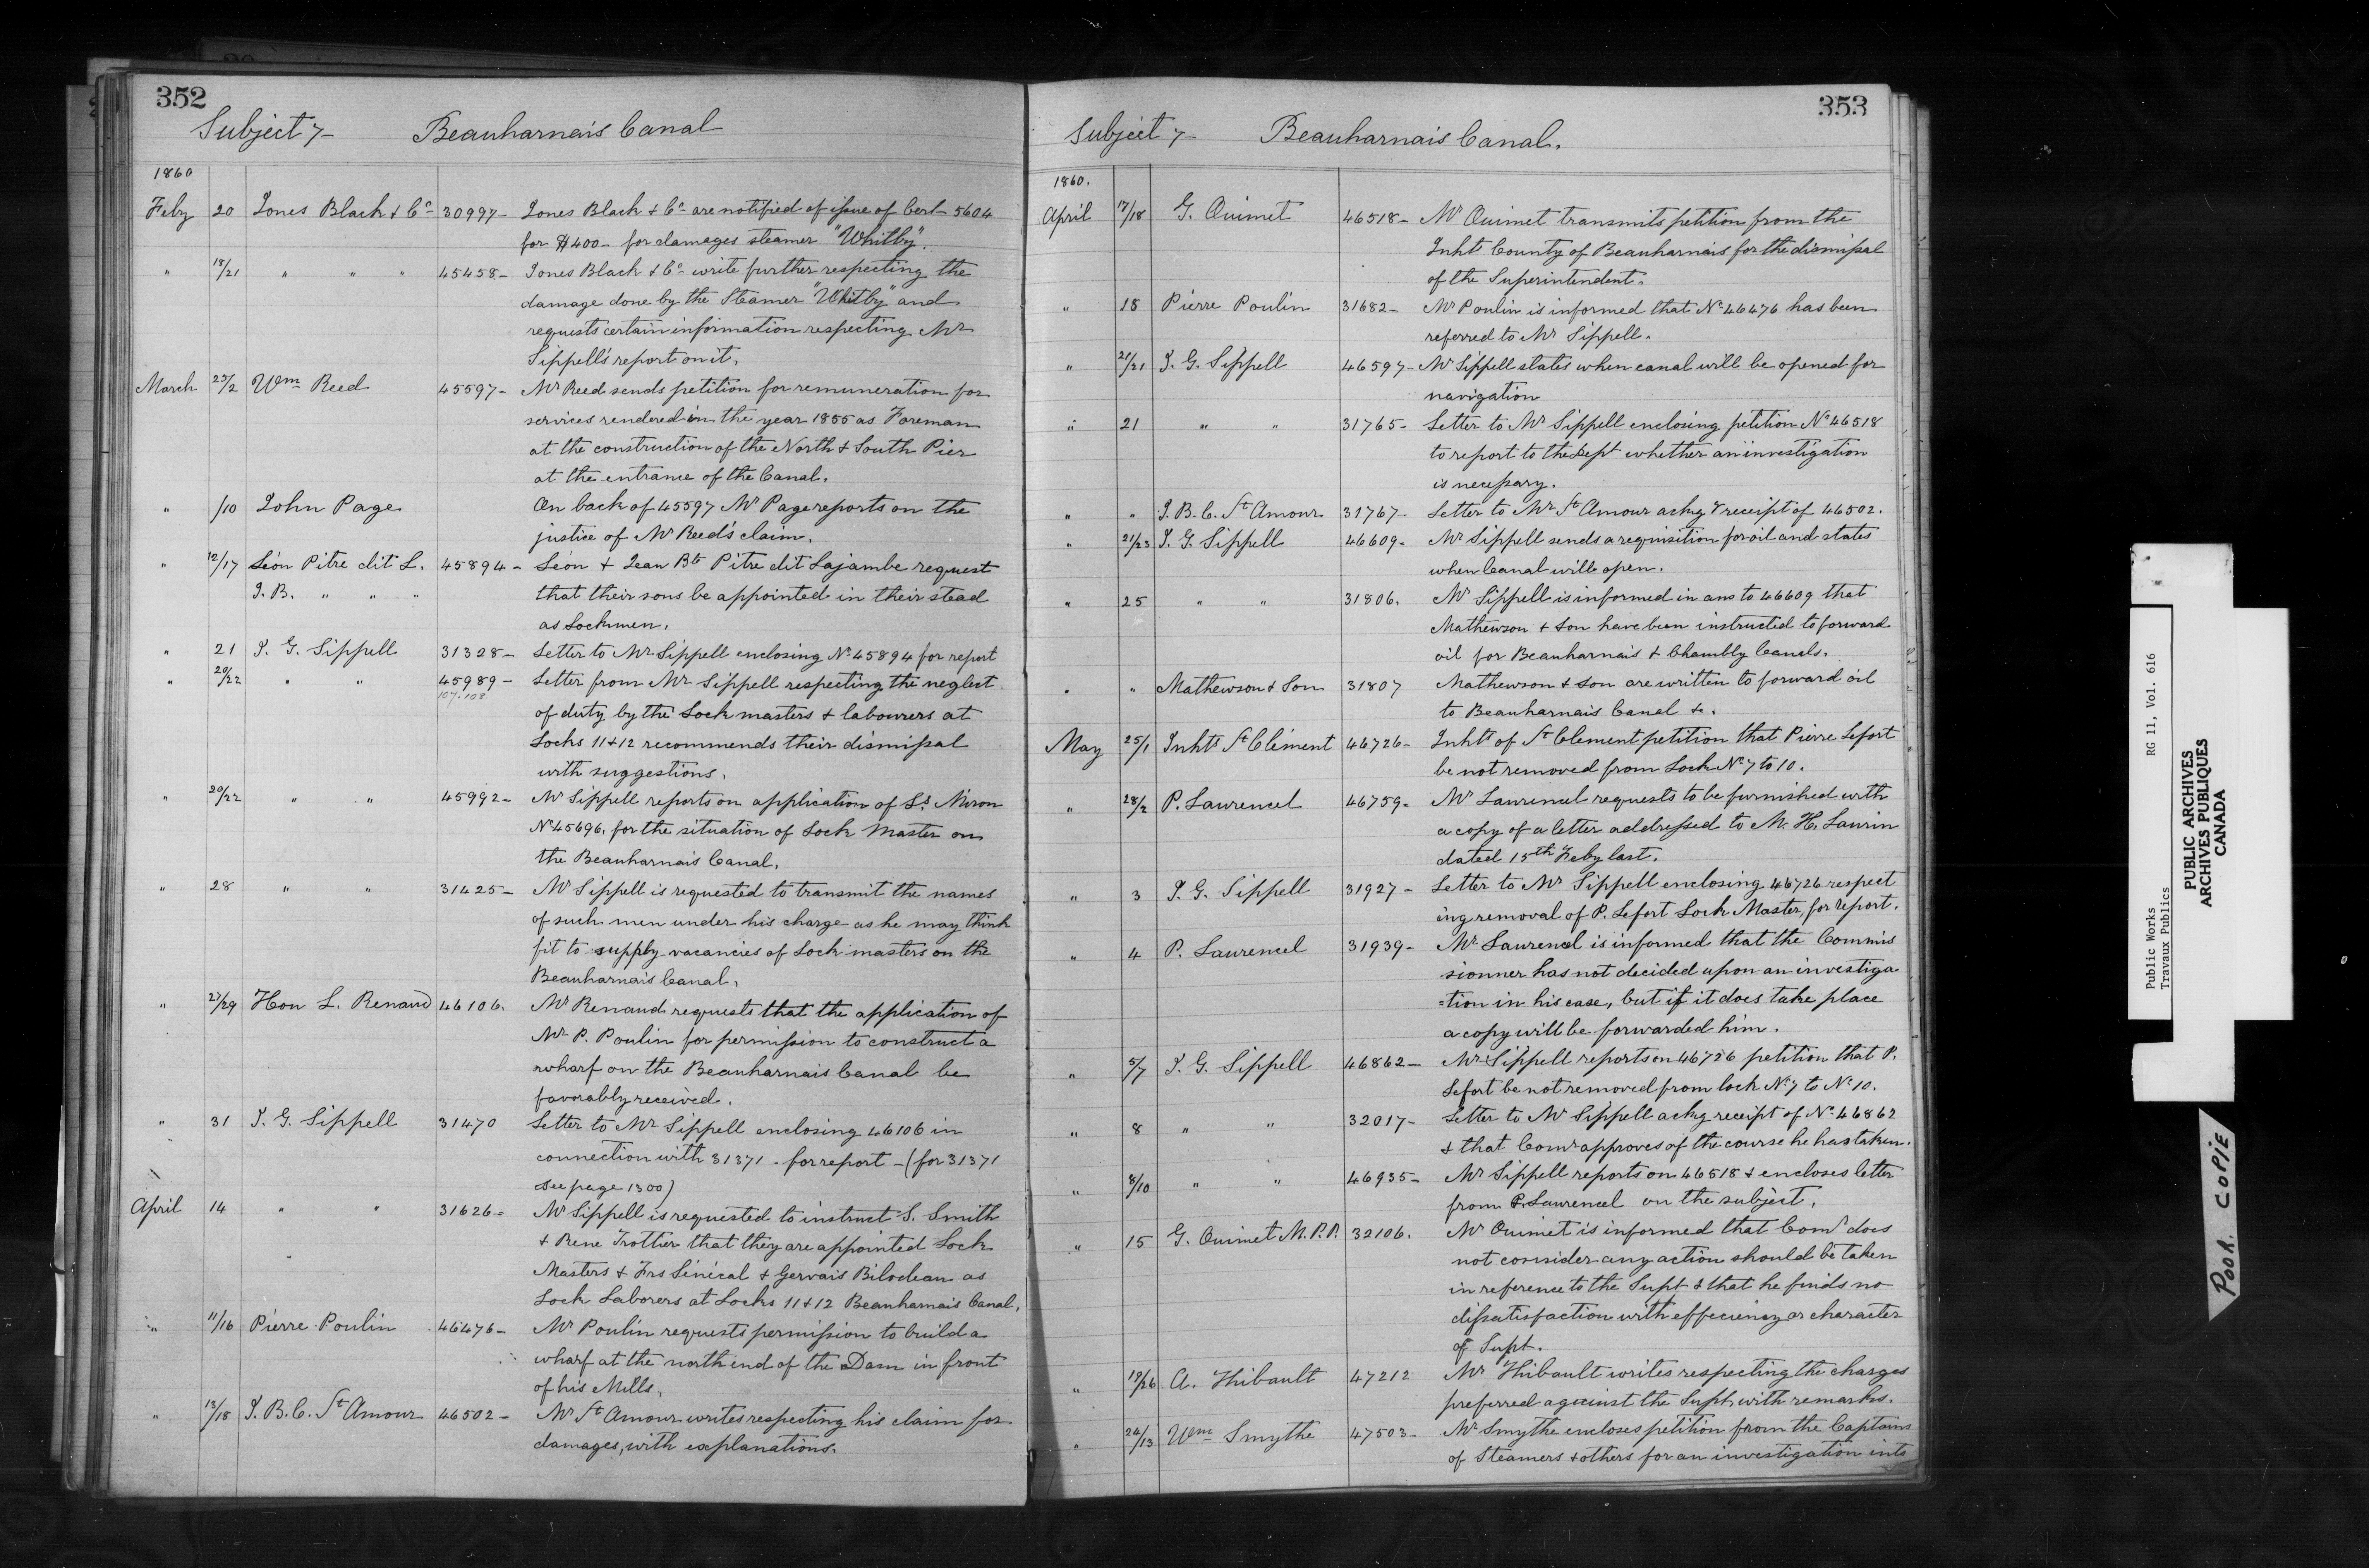 352
Subject 7- Beauharnais Canal
1860
Feby 20 Jones Black & Co 30997- Jones Black & Co are notified of issue of Cert 5604
for $400- for damages steamer "Whitby".
" 18/21 " " " 45458- Jones Black & Co write further respecting the
damage done by the Steamer "Whitby" and
requests certain information respecting Mr
Sippell's report on it.
March 25/2 Wm Reed 45597- Mr Reed sends petition for remuneration for
services rendered in the year 1855 as Foreman
at the construction of the North & South Pier
at the entrance of the Canal.
" /10 John Page On back of 45597 Mr Page reports on the
justice of Mr Reed's claim.
" 12/17 Léon Pitre dit L. 45894- Léon & Jean Bte Pitre dit Lajambe request
J.B. " " " that their sons be appointed in their stead
as Lockmen.
" 21 J. G. Sippell 31328- Letter to Mr Sippell enclosing No 45894 for report
" 20/22 " " 45989- Letter from Mr Sippell respecting the neglect
107.108. of duty by the Lock masters & labourers at
Locks 11&12 recommends their dismissal
with suggestions.
" 20/22 " " 45992- Mr Sippell reports on application of Ls Miron
No 45696. for the situation of Lock Master on
the Beauharnais Canal.
" 28 " " 31425- Mr Sippell is requested to transmit the names
of such men under his charge as he may think
fit to supply vacancies of Lock masters on the
Beauharnais Canal.
" 27/29 Hon L. Renaud 46106. Mr Renaud requests that the application of
Mr P. Poulin for permission to construct a
wharf on the Beauharnais Canal be
favorably received.
" 31 J. G. Sippell 31470 Letter to Mr Sippell enclosing 46106 in
connection with 31371 - for report - (for 31371
see page 1300)
April 14 " " 31626- Mr Sippell is requested to instruct S. Smith
& Rene Trottier that they are appointed Lock
Masters & Frs Sinécal & Gervais Bilodeau as
Lock Laborers at Locks 11&12 Beauharnais Canal.
" 11/16 Pierre Poulin 46476- Mr Poulin requests permission to build a
wharf at the north end of the Dam in front
of his Mills.
" 13/18 J. B. C. St Amour 46502- Mr St Amour writes respecting his claim for
damages, with explanations.
353
Subject 7- Beauharnais Canal.
1860.
April 17/18 G. Ouimet 46518- Mr Ouimet transmits petition from the
Inhts County of Beauharnais for the dismissal
of the Superintendent.
" 18 Pierre Poulin 31682- Mr Poulin is informed that No 46476 has been
referred to Mr Sippell.
" 21/21 J. G. Sippell 46597- Mr Sippell states when canal will be opened for
navigation
" 21 " " 31765- Letter to Mr Sippell enclosing petition No 46518
to report to the Dept whether an investigation
is necessary.
" " J. B. C. St Amour 31767- Letter to Mr St Amour ackg receipt of 46502.
" 21/23 J. G. Sippell 46609- Mr Sippell sends a requisition for oil and states
when Canal will open.
" 25 " " 31806. Mr Sippell is informed in ans to 46609 that
Mathewson & Son have been instructed to forward
oil for Beauharnais & Chambly Canals.
" " Mathewson & Son 31807 Mathewson & Son are written to forward oil
to Beauharnais Canal &.
May 25/1 Inhts St Clément 46726- Inhts of St Clement petition that Pierre Lefort
be not removed from Lock No 7 to 10.
" 28/2 P. Laurencel 46759- Mr Laurencel requests to be furnished with
a copy of a letter addressed to M. H. Laurin
dated 15th Feby last.
" 3 J. G. Sippell 31927- Letter to Mr Sippell enclosing 46726 respect
ing removal of P. Lefort Lock Master, for report.
" 4 P. Laurencel 31939- Mr Laurencel is informed that the Commis
sionner has not decided upon an investiga
=tion in his case, but if it does take place
a copy will be forwarded him.
" 5/7 J. G. Sippell 46862- Mr Sippell reports on 46726 petition that P.
Lefort be not removed from lock No 7 to No 10.
" 8 " " 32017- Letter to Mr Sippell ackg receipt of No 46862
& that Comr approves of the course he has taken.
" 8/10 " " 46935- Mr Sippell reports on 46518 & encloses letter
from P. Laurencel on the subject.
" 15 G. Ouimet M.P.P. 32106. Mr Ouimet is informed that Comr does
not consider any action should be taken
in reference to the Supt & that he finds no
dissatisfaction with effeciency or character
of Supt.
" 19/26 A. Thibault 47212 Mr Thibault writes respecting the charges
preferred against the Supt, with remarks.
" 24/13 Wm Smythe 47503- Mr Smythe encloses petition from the Captains
of Steamers & others for an investigation into
Public Works RG 11, Vol. 616
Travaux Publics
PUBLIC ARCHIVES
ARCHIVES PUBLIQUES
CANADA
POOR COPIE